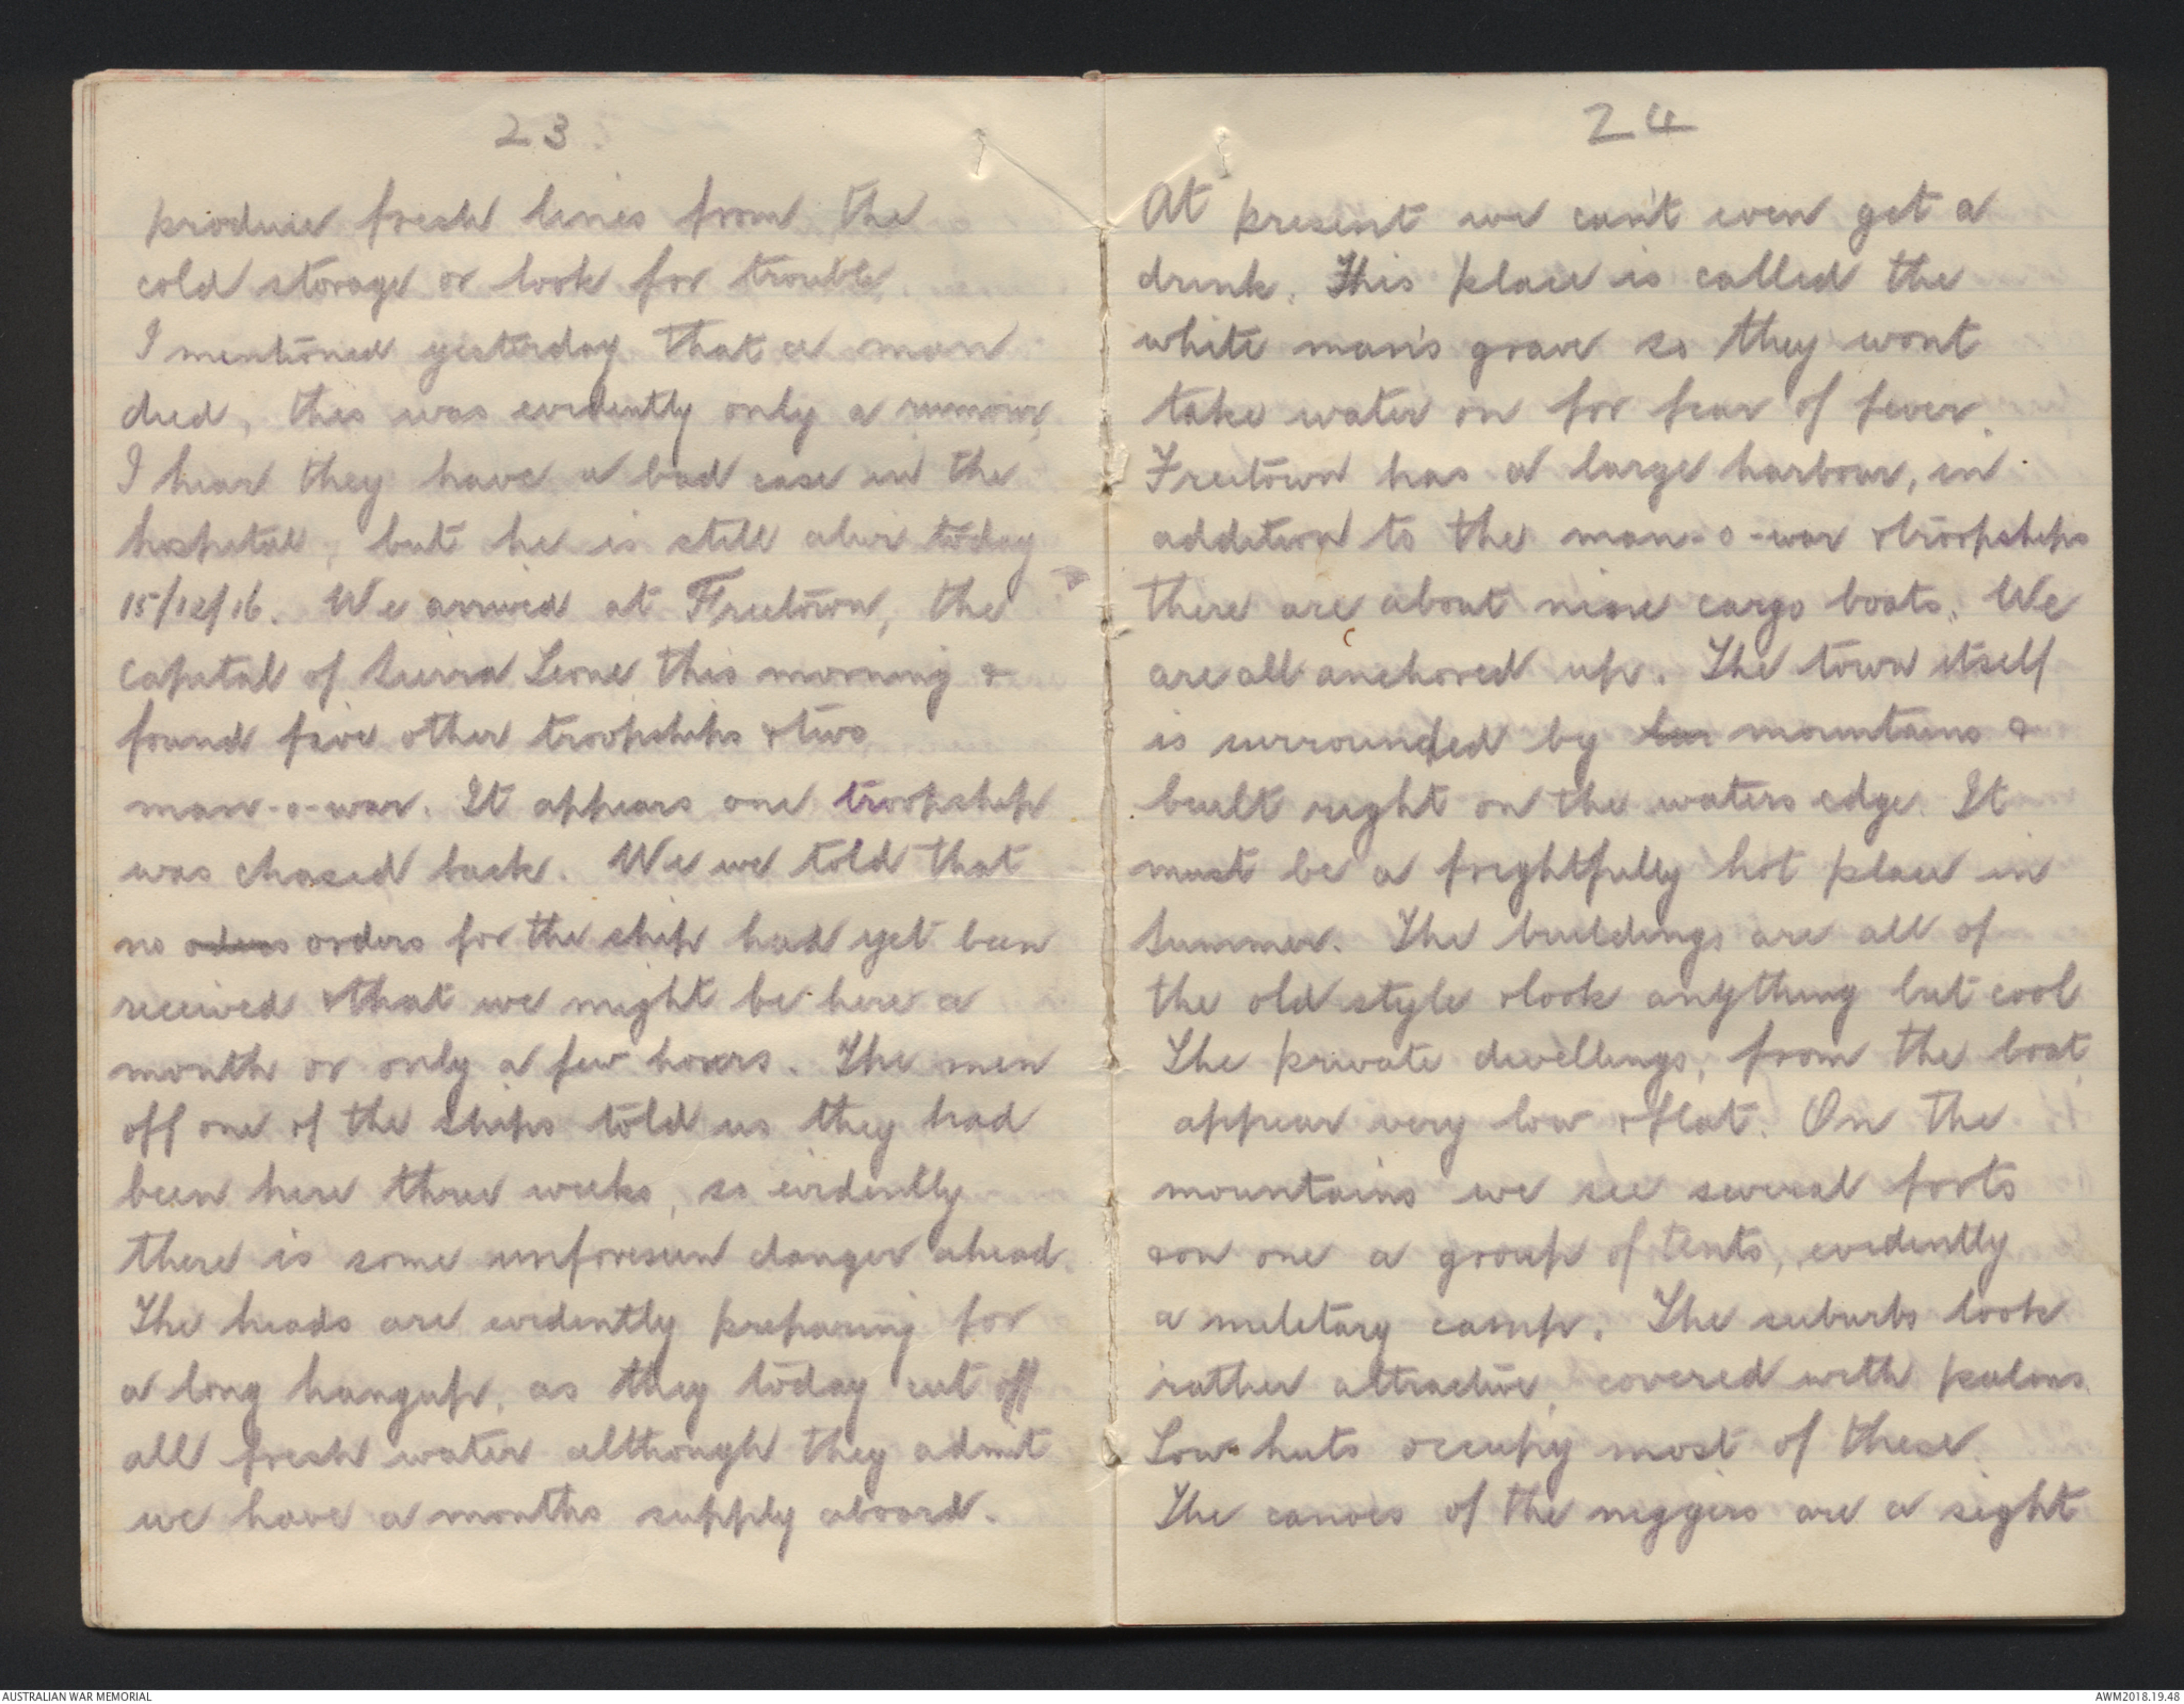 23.
produce fresh lines from the
cold storage or look for trouble.
I mentioned yesterday that a man
died, this was evidently only a rumour,
I hear they have a bad case in the
hospital, but he is still alive today
15/12/16. We arrived at Freetown, the
capital of Sierra Leone this morning &
found five other troopships & two
man-o-war. It appears one troopship
was chased back. We we told that
no oders orders for the ship had yet been
received & that we might be here a
month or only a few hours. The men
off one of the ships told us they had
been here three weeks, so evidently
there is some unforeseen danger ahead.
The heads are evidently preparing for
a long hangup, as they today cut off
all fresh water although they admit
we have a months supply aboard.
24
At present we can't even get a
drink. This place is called the
white man's grave so they wont
take water on for fear of fever.
Freetown has a large harbour, in
addition to the man-o-war & troopships
there are about nine cargo boats. We
are all anchored up. The town itself
is surrounded by mountains &
built right on the waters edge. It
must be a frightfully hot place in
Summer. The buildings are all of
the old style & look anything but cool
The private dwellings, from the boat,
appear very low & flat. On the
mountains we see several forts
& on one a group of tents, evidently
a military camp. The suburbs look
rather attractive, covered with palms.
Low huts occupy most of these.
The canoes of the niggers are a sight
AUSTRALIAN WAR MEMORIAL
AWM2018.19.48